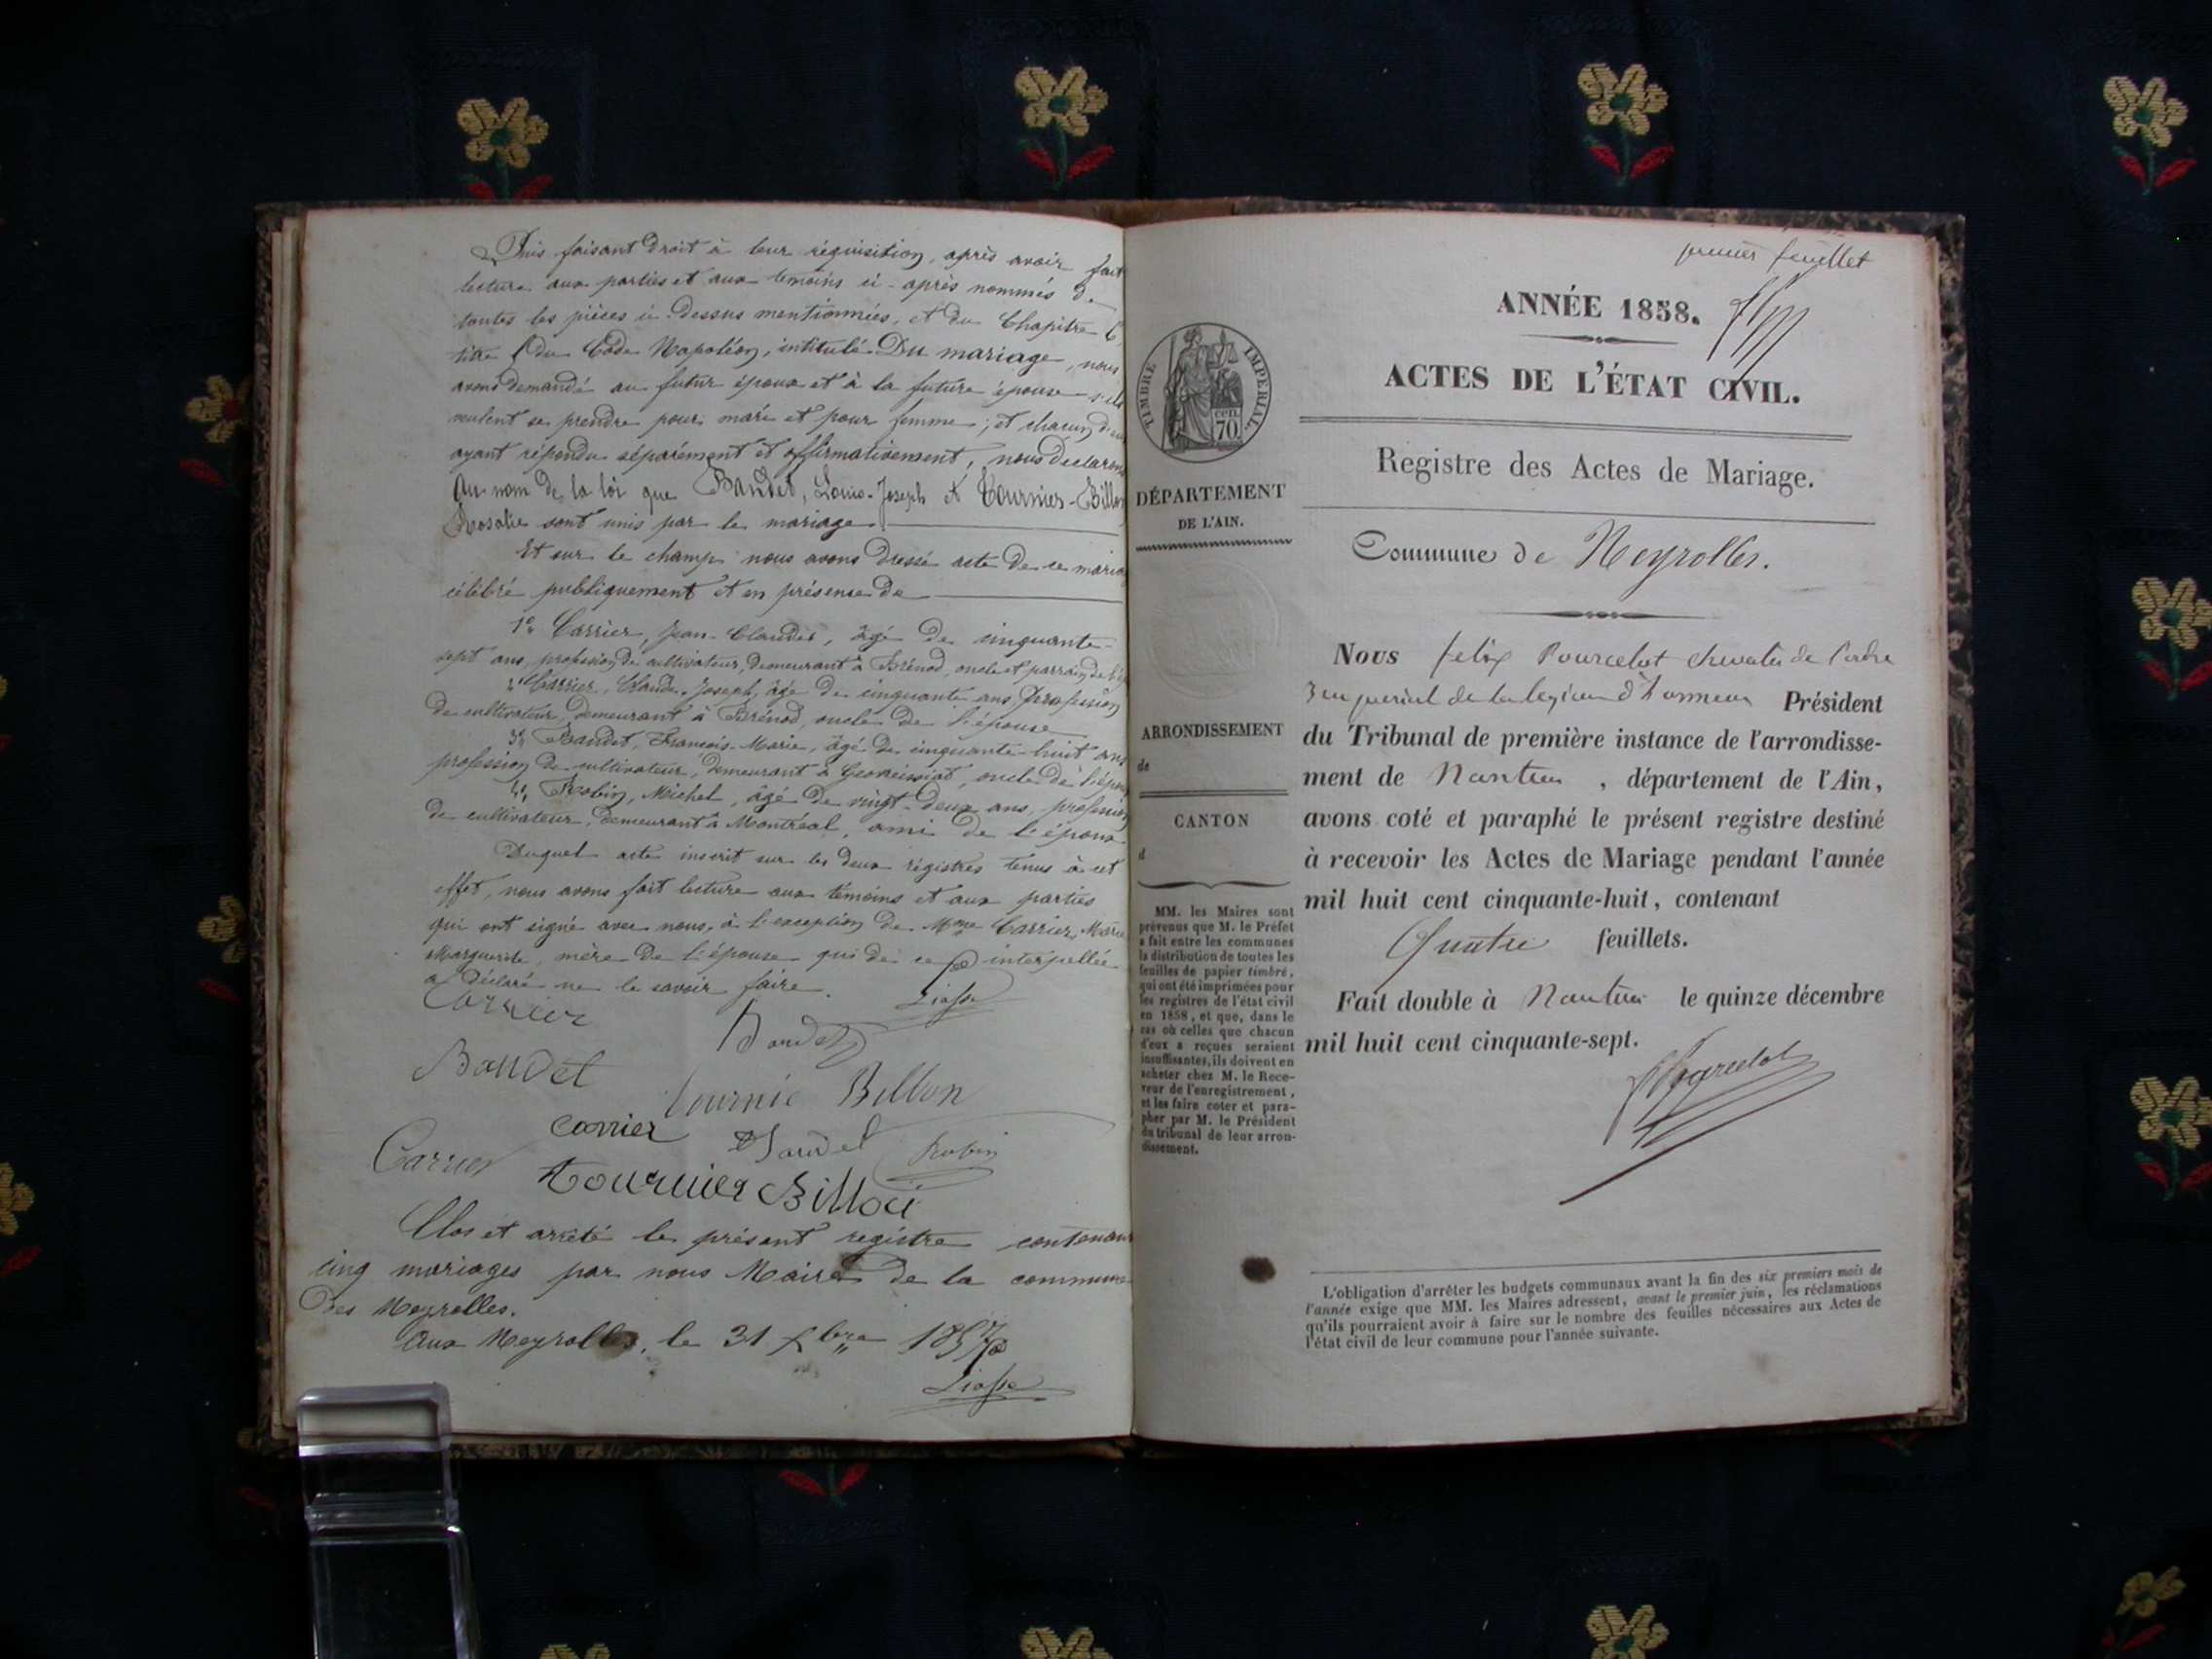 Puis faisant droit à leur réquisition, après avoir fait
lecture aux parties et aux témoins ci-après nommés de
toutes les pièces ci-dessus mentionnées, et du Chapitre 6,
titre du Code Napoléon, intitulé Du mariage, nous
avons demandé au futur époux et à la future épouse s'ils
veulent se prendre pour mari et pour femme; et chacun d'eux
ayant répondu séparément et affirmativement, nous déclarons
Au nom de la loi que Baudet, Louis-Joseph et Tournier-Billon
Rosalie sont unis par le mariage
Et sur le champ nous avons dressé acte de ce
célébré publiquement et en présence de
1° Carrier, Jean-Claude, âgé de cinquante-
sept ans, profession de cultivateur, demeurant à Brénod, oncle et parrain de
2° Carrier, Claude-Joseph, âgé de cinquante ans, profession
de cultivateur, demeurant à Brénod, oncle de l'épouse
3° Baudet, François-Marie, âgé de cinquante-huit ans
profession de cultivateur, demeurant à Géovreissiat, oncle de
4° Robin, Michel, âgé de vingt-deux ans, profession
de cultivateur, demeurant à Montréal, ami de l'époux
Duquel acte inscrit sur les deux régistres tenus à cet
effet, nous avons fait lecture aux témoins et aux parties
qui ont signé avec nous, à l'exception de Mme Carrier, Marie
Marguerite, mère de l'épouse qui de ce interpellée
a déclaré ne le savoir faire.
Carrier
Baudet
Baudet
Tournie Billon
Carrier
Carrier
Baudet
Robin
Tournier Billon
Clos et arrêté le présent registre contenant
cinq mariages par nous Maire de la commune
des Neyrolles.
Aux Neyrolles, le 31 Xbre 1857
premier feuillet
ANNÉE 1858.
ACTES DE L'ÉTAT CIVIL.
Registre des Actes de Mariage.
Commune de Neyrolles.
TIMBRE IMPERIAL
cen. 70
DÉPARTEMENT
DE L'AIN.
ARRONDISSEMENT
de
CANTON
d
MM. les Maires sont
prévenus que M. le Préfet
a fait entre les communes
la distribution de toutes les
feuilles de papier timbré,
qui ont été imprimées pour
les registres de l'état civil
en 1858, et que, dans le
cas où celles que chacun
d'eux a reçues seraient
insuffisantes, ils doivent en
acheter chez M. le Rece-
veur de l'enregistrement,
et les faire coter et para-
pher par M. le Président
du tribunal de leur arron-
dissement.
Nous felix Pourcelot chevalier de l'ordre
imperial de la legion d'honneur Président
du Tribunal de première instance de l'arrondisse-
ment de Nantua , département de l'Ain,
avons coté et paraphé le présent registre destiné
à recevoir les Actes de Mariage pendant l'année
mil huit cent cinquante-huit, contenant
Quatre feuillets.
Fait double à Nantua le quinze décembre
mil huit cent cinquante-sept.
Pourcelot
L'obligation d'arrêter les budgets communaux avant la fin des six premiers mois de
l'année exige que MM. les Maires adressent, avant le premier juin, les réclamations
qu'ils pourraient avoir à faire sur le nombre des feuilles nécessaires aux Actes de
l'état civil de leur commune pour l'année suivante.